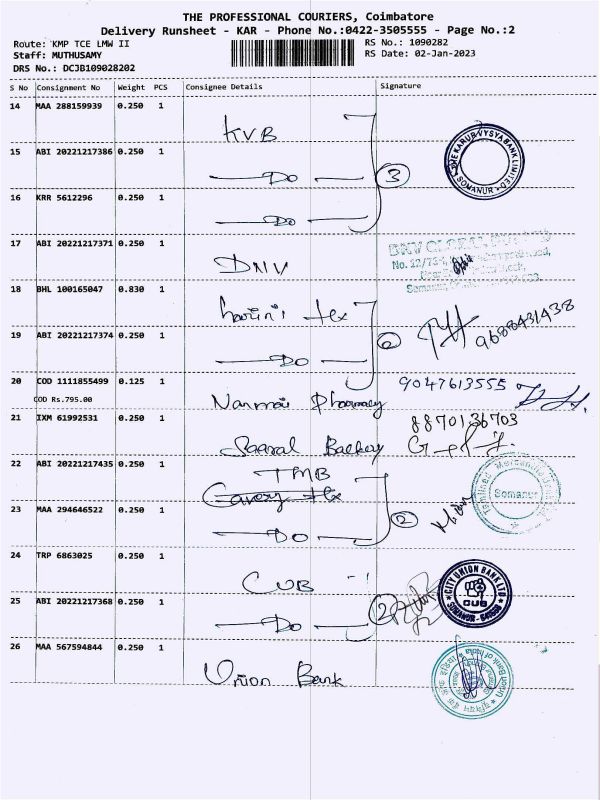 THE PROFESSIONAL COURIERS, Coimbatore
Delivery Runsheet - KAR - Phone No.:0422-3505555 - Page No.:2
Route: KMP TCE LMW II
RS No.: 1090282
Staff: MUTHUSAMY
RS Date: 02-Jan-2023
DRS No.: DCJB109028202
S No Consignment No Weight PCS Consignee Details Signature
14 MAA 288159939 0.250 1
KVB
15 ABI 20221217386 0.250 1
Do
3
THE KARUR VYSYA BANK LIMITED
SOMANUR
16 KRR 5612296 0.250 1
Do
17 ABI 20221217371 0.250 1
DNV
18 BHL 100165047 0.830 1
harini tex
9688431438
19 ABI 20221217374 0.250 1
Do
20 COD 1111855499 0.125 1
9047613555
COD Rs.795.00
Pharmacy
21 IXM 61992531 0.250 1
8870136703
22 ABI 20221217435 0.250 1
TMB
Tamilnad Mercantile
Somanur
23 MAA 294646522 0.250 1
Do
2
24 TRP 6863025 0.250 1
CUB
CITY UNION BANK LTD
CUB
25 ABI 20221217368 0.250 1
Do
2
26 MAA 567594844 0.250 1
Union Bank
Union Bank of India